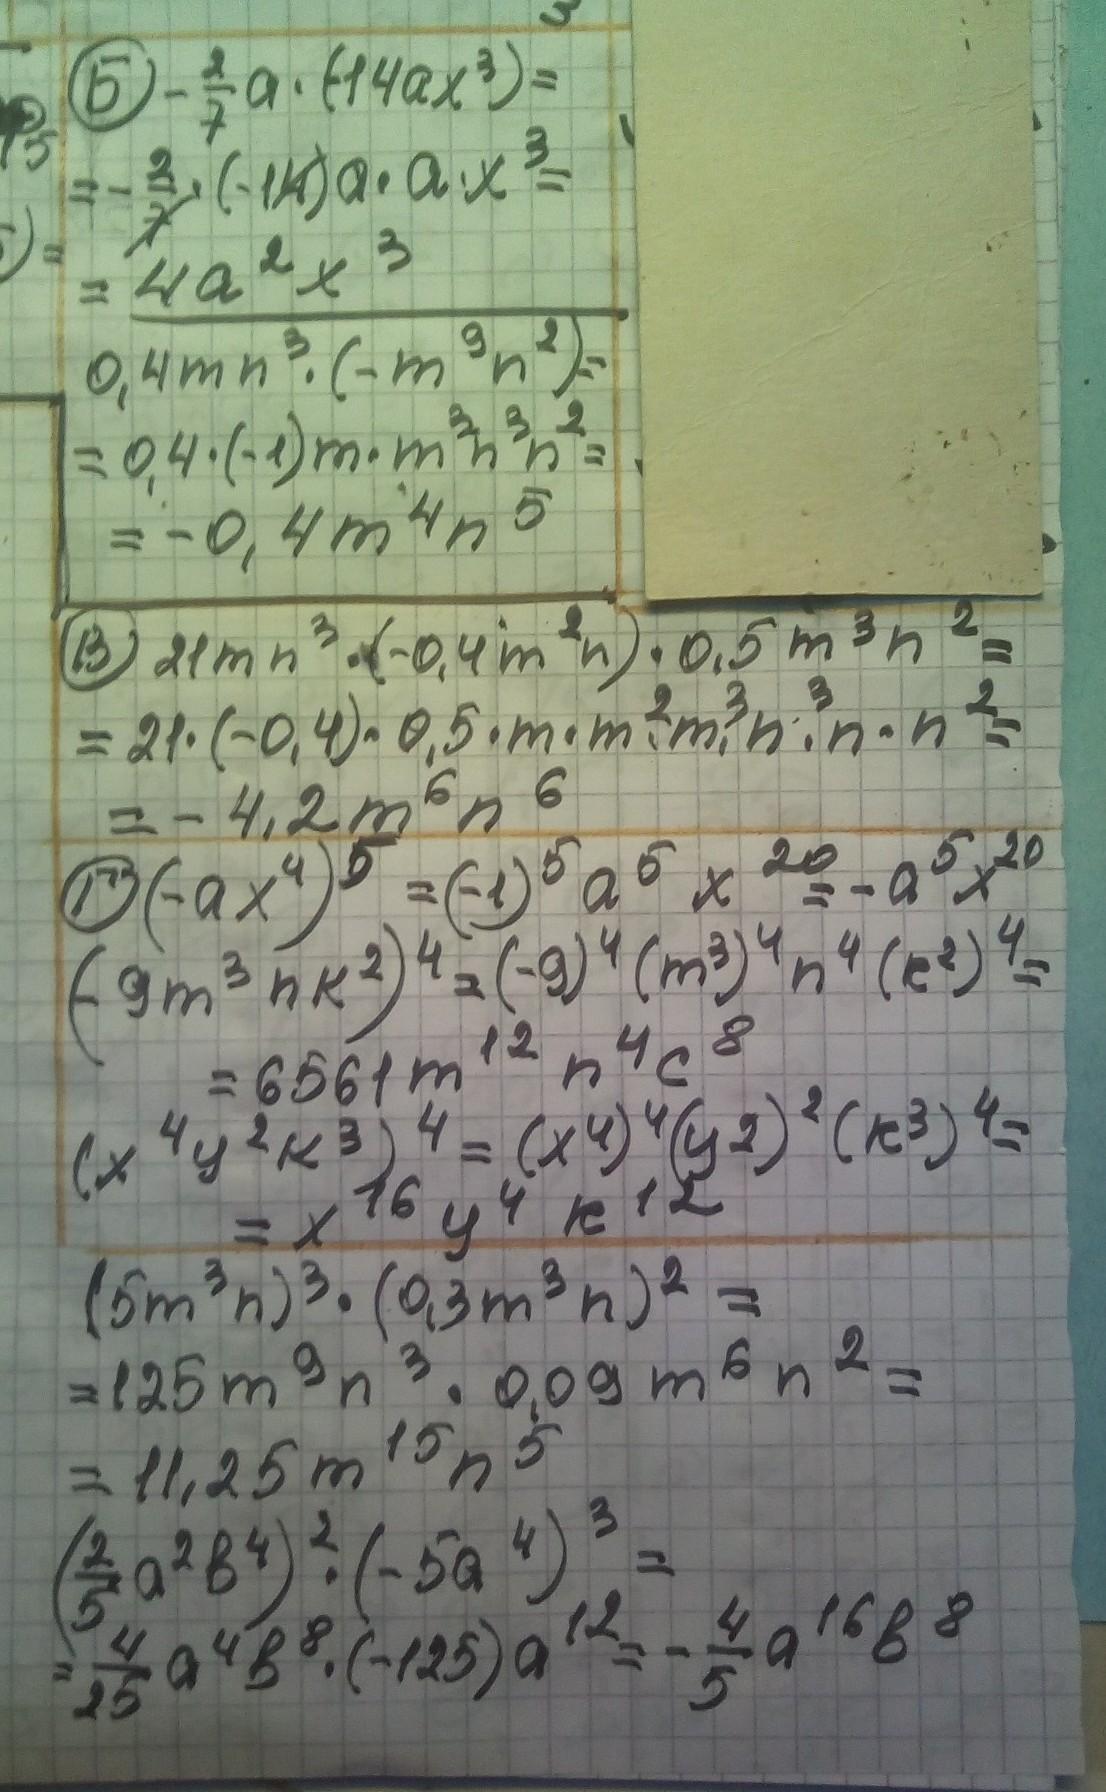 Б) - 2/7 a · (-14ax³) =
= - 2/7 · (-14) a · a · x³ =
= 4a²x³
0,4mn³ · (-m⁹n²) =
= 0,4 · (-1) m · m³n³n² =
= -0,4m⁴n⁵
В) 21mn³ · (-0,4m²n) · 0,5m³n² =
= 21 · (-0,4) · 0,5 · m · m² · m³ · n³ · n · n² =
= -4,2m⁶n⁶
Г) (-ax⁴)⁵ = (-1)⁵a⁵x²⁰ = -a⁵x²⁰
(-9m³nк²)⁴ = (-9)⁴(m³)⁴n⁴(к²)⁴ =
= 6561m¹²n⁴c⁸
(x⁴y²к³)⁴ = (x⁴)⁴(y2)²(к³)⁴ =
= x¹⁶y⁴к¹²
(5m³n)³ · (0,3m³n)² =
= 125m⁹n³ · 0,09m⁶n² =
= 11,25m¹⁵n⁵
(2/5 a²в⁴)² · (-5a⁴)³ =
= 4/25 a⁴в⁸ · (-125)a¹² = - 4/5 a¹⁶в⁸